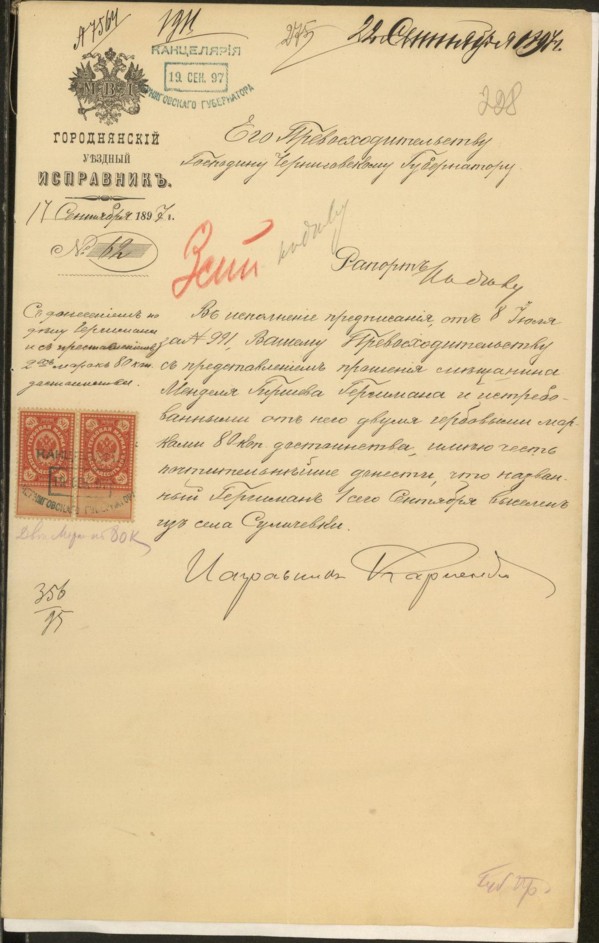 А 7564
1911
275
22 Сентября 1897 г.
КАНЦЕЛЯРІЯ
19. СЕН. 97
ЧЕРНИГОВСКАГО ГУБЕРНАТОРА
228
М В Д
ГОРОДНЯНСКІЙ
УѢЗДНЫЙ
ИСПРАВНИКЪ.
17 Сентября 1897 г.
№ 62
Его Превосходительству
Господину Черниговскому Губернатору.
Рапортъ
Съ донесеніемъ по
дѣлу Гершмана
и съ представленіемъ
2хъ марокъ 80 коп.
достоинства.
Въ исполненіе предписанія, отъ 8 Іюля
за № 991, Вашему Превосходительству
съ представленіемъ прошенія мѣщанина
Менделя Гершмана и истребо-
ванными отъ него двумя гербовыми мар-
ками 80 коп достоинства, имѣю честь
почтительнѣйше донести, что назван-
ный Гершманъ 1 сего Сентября выселенъ
изъ села Суличевки.
Исправникъ
Двѣ марки по 80 к
356
95
Губ. Пр.